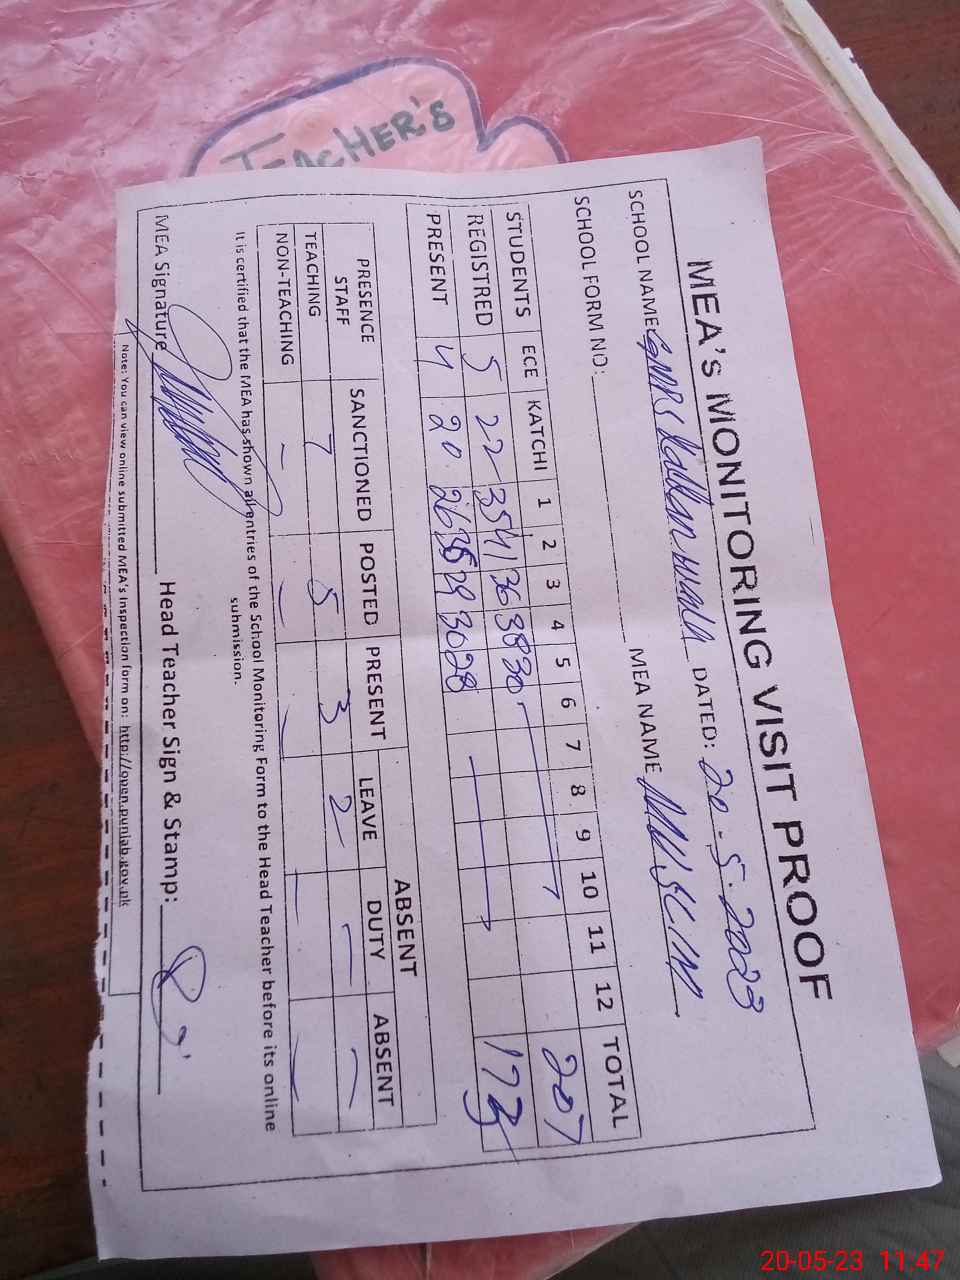 TEACHER'S
MEA's MONITORING VISIT PROOF
SCHOOL NAME DATED: 20-5-2023
SCHOOL FORM NO: MEA NAME
STUDENTS ECE KATCHI 1 2 3 4 5 6 7 8 9 10 11 12 TOTAL
REGISTRED 5 22 35 41 36 38 30 - 207
PRESENT 4 20 26 35 29 30 28 173
PRESENCE STAFF SANCTIONED POSTED PRESENT ABSENT
LEAVE DUTY ABSENT
TEACHING 7 5 3 2 - -
NON-TEACHING - - - - - -
It is certified that the MEA has shown all entries of the School Monitoring Form to the Head Teacher before its online
submission.
MEA Signature Head Teacher Sign & Stamp:
Note: You can view online submitted MEA's Inspection form on: http://open.punjab.gov.pk
20-05-23 11:47